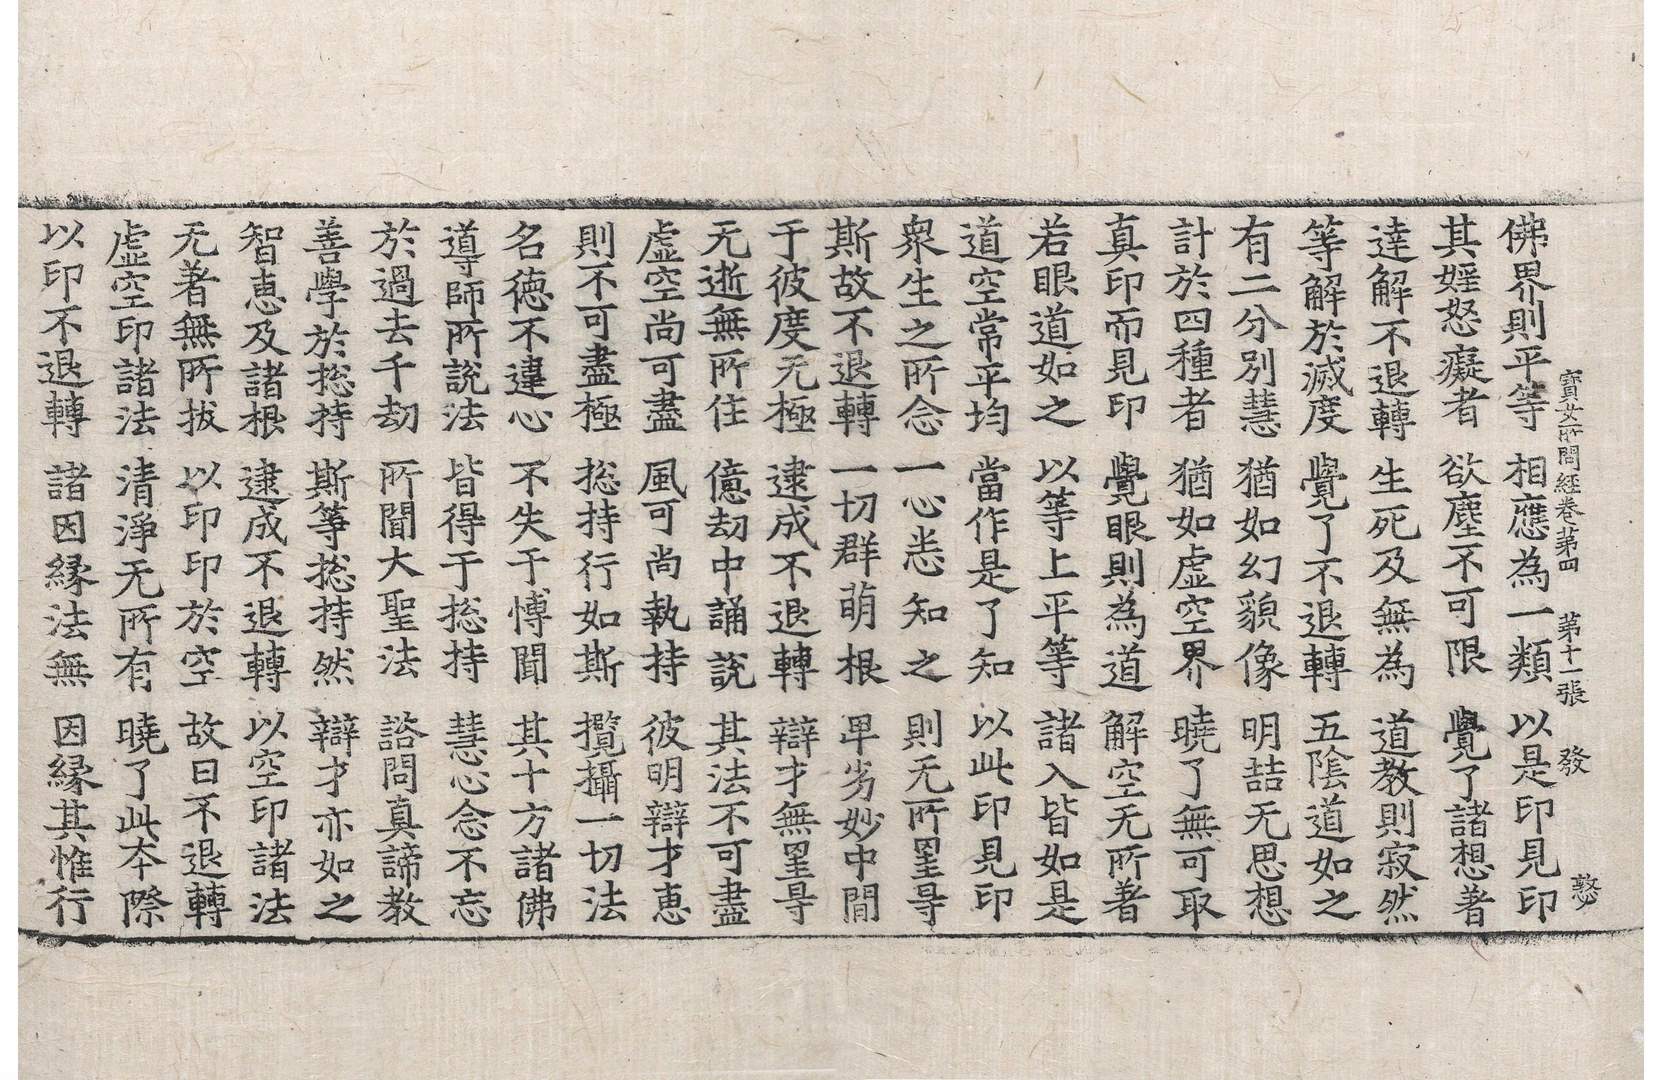 寶女所問經卷第四 第十一張 發 憖
佛界則平等 相應為一類 以是印見印
其婬怒癡者 欲塵不可限 覺了諸想著
達解不退轉 生死及無為 道教則寂然
等解於滅度 覺了不退轉 五陰道如之
有二分別慧 猶如幻貌像 明喆无思想
計於四種者 猶如虛空界 曉了無可取
真印而見印 覺眼則為道 解空无所著
若眼道如之 以等上平等 諸入皆如是
道空常平均 當作是了知 以此印見印
衆生之所念 一心悉知之 則无所罣㝵
斯故不退轉 一切群萌根 卑劣妙中間
于彼度无極 逮成不退轉 辯才無罣㝵
无逝無所住 億劫中誦說 其法不可盡
虛空尚可盡 風可尚執持 彼明辯才恵
則不可盡極 捴持行如斯 攬攝一切法
名德不違心 不失于博聞 其十方諸佛
導師所說法 皆得于捴持 慧心念不忘
於過去千劫 所聞大聖法 諮問真諦教
善學於捴持 斯等捴持然 辯才亦如之
智恵及諸根 逮成不退轉 以空印諸法
无著無所拔 以印印於空 故曰不退轉
虛空印諸法 清淨无所有 曉了此本際
以印不退轉 諸因縁法無 因縁其惟行